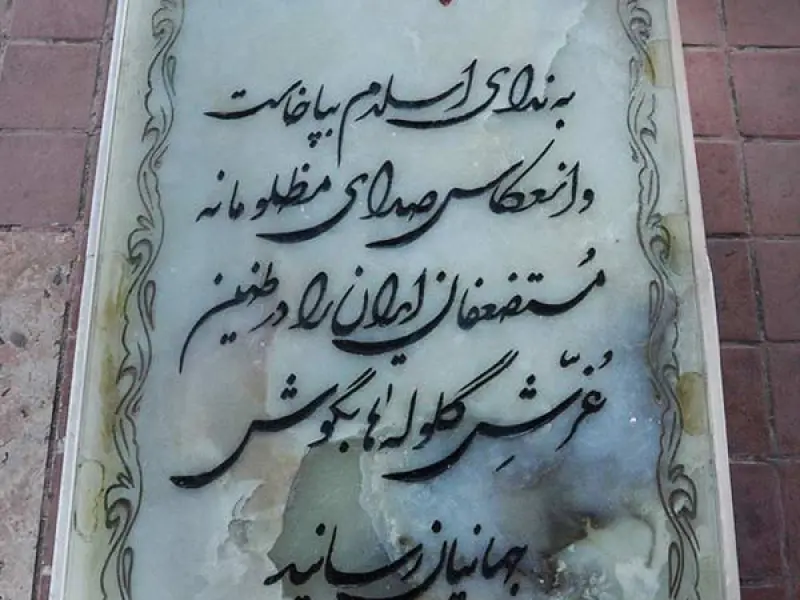 به ندای اسلام بپاخاست
و انعکاس صدای مظلومانه
مُستضعفان ایران را در طنین
غُرّشِ گلوله ها بگوش
جهانیان رسانید